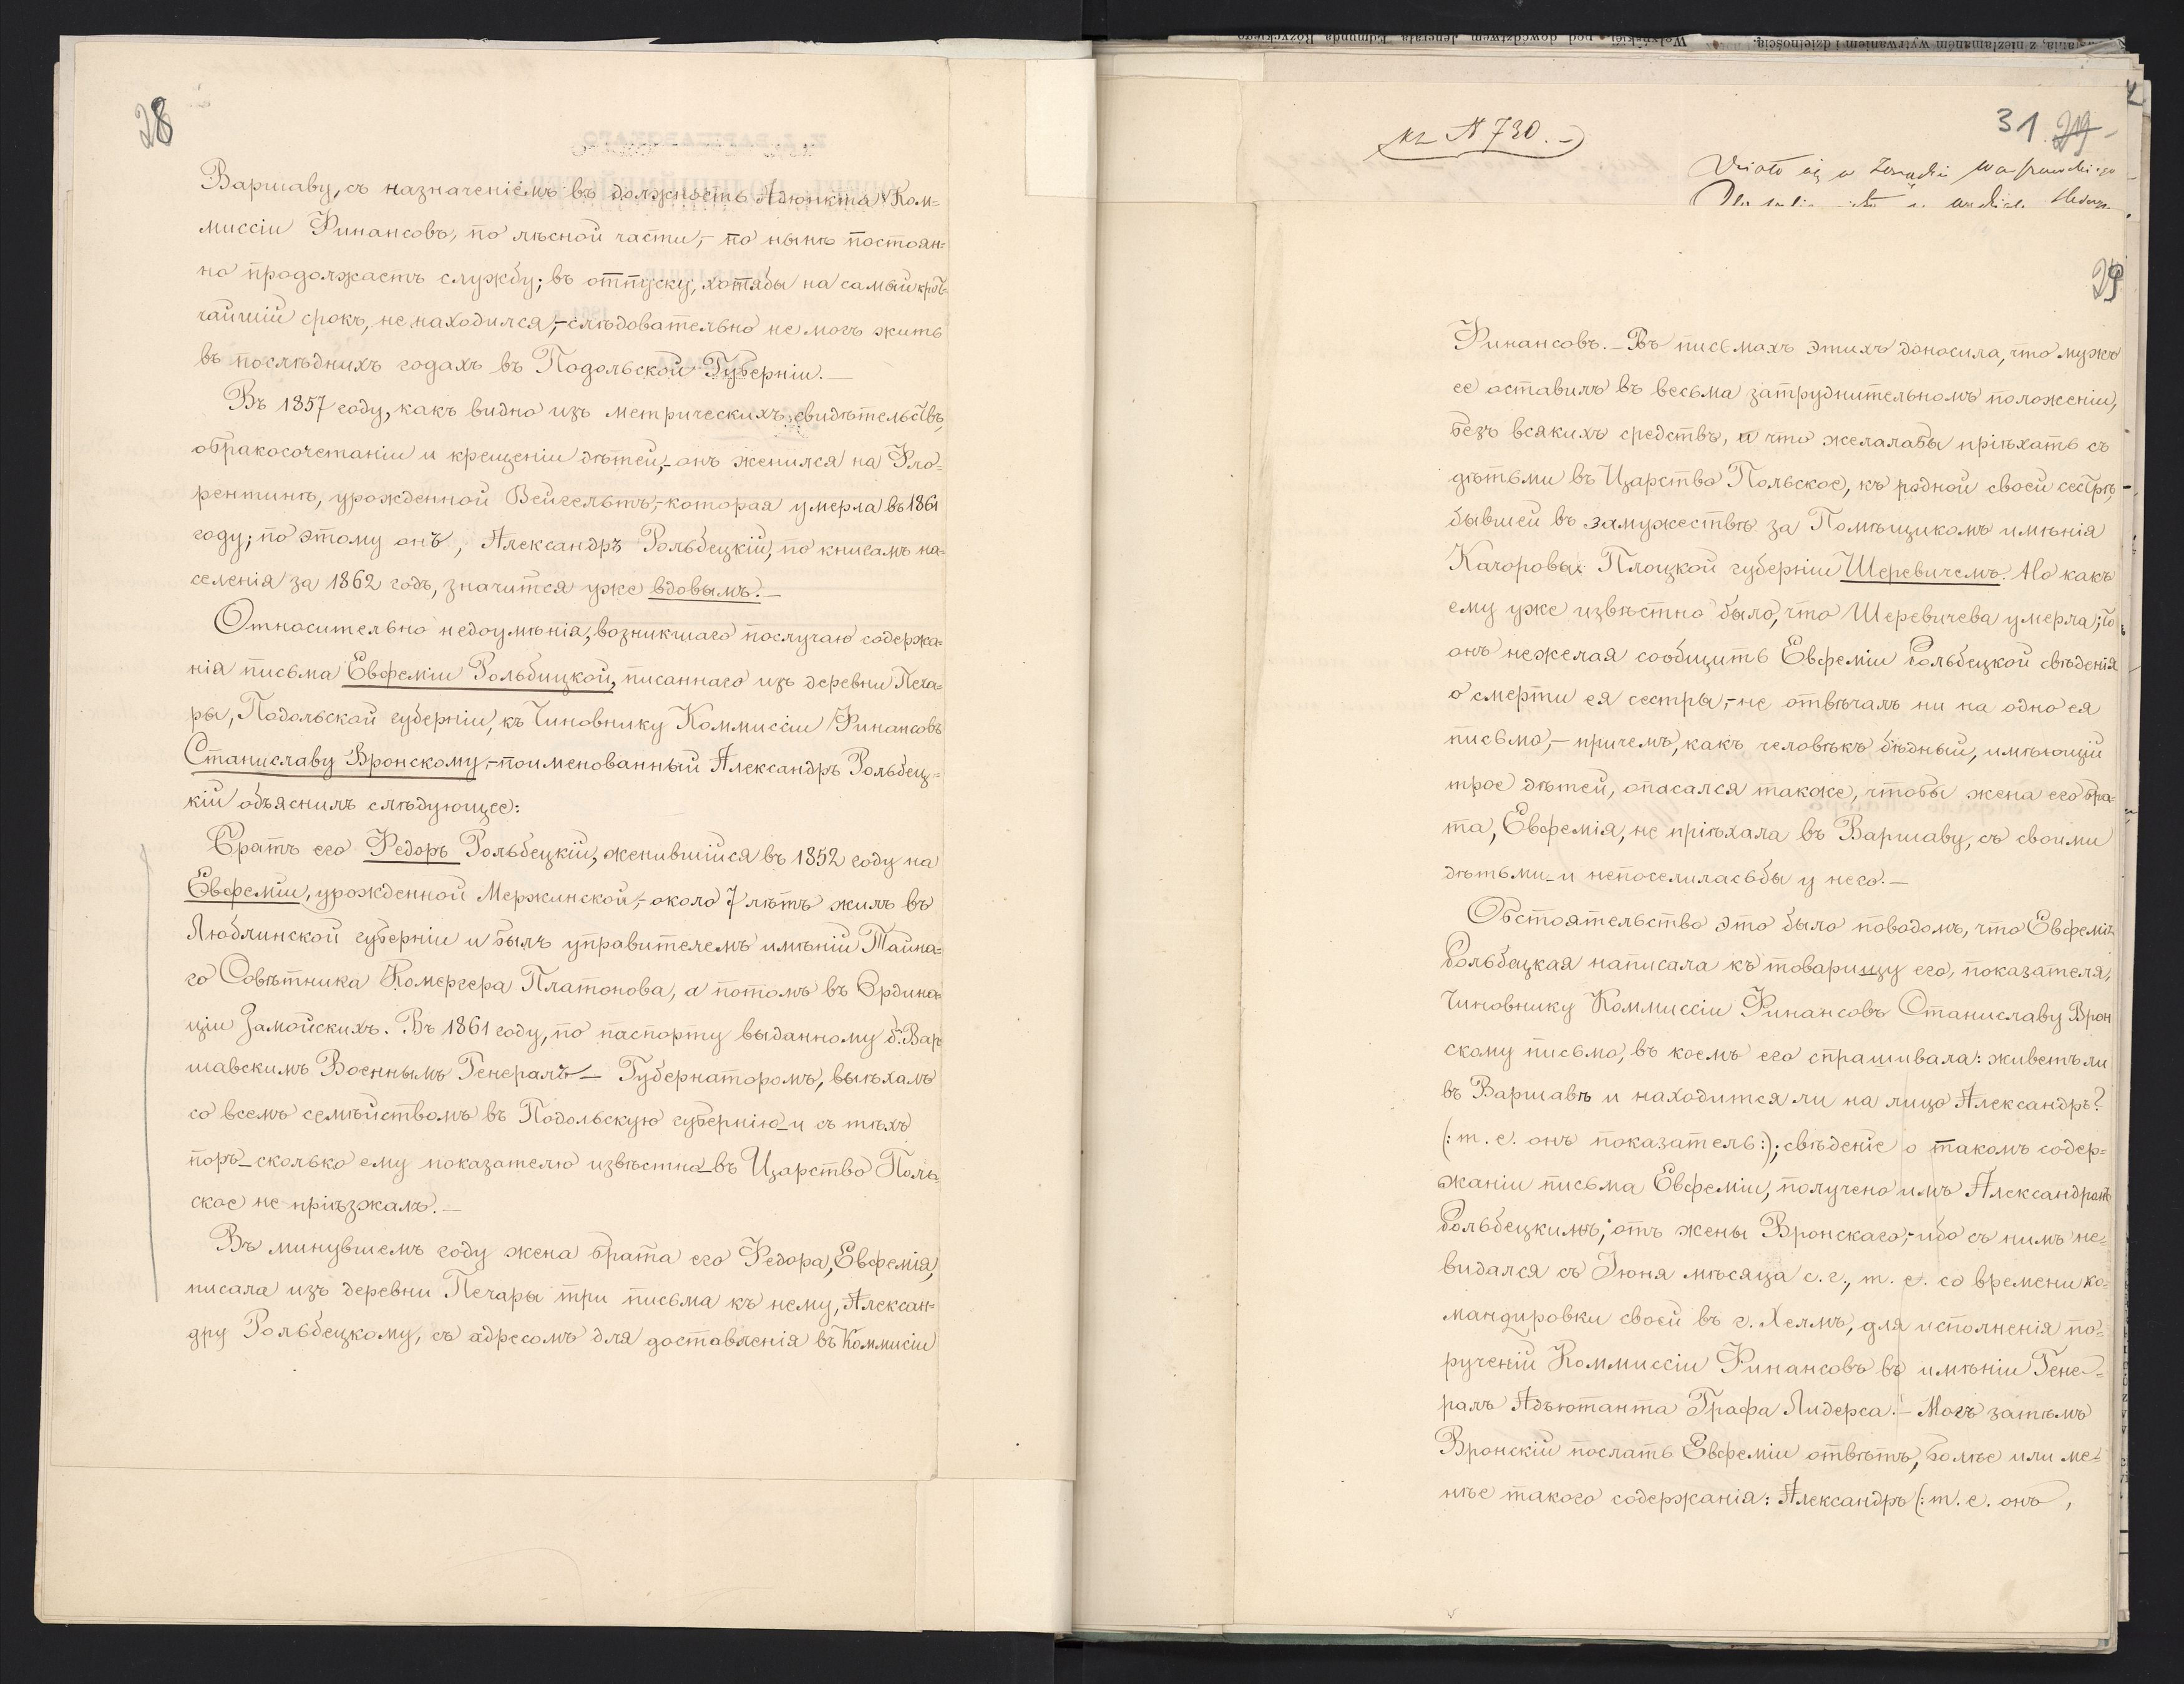 28
Варшаву, съ назначеніемъ въ должность Адюнкта Ком=
миссіи Финансовъ, по лѣсной части,- по нынѣ постоян=
но продолжаетъ службу; въ отпуску, хотябы на самый крат=
чайшій срокъ, не находился,- слѣдовательно не могъ жить
въ послѣднихъ годахъ въ Подольской Губерніи.—
Въ 1857 году, какъ видно изъ метрическихъ свидѣтельствъ,
обракосочетаніи и крещеніи дѣтей,- онъ женился на Фло=
рентинѣ, урожденной Вейгельтъ,- которая умерла въ 1861
году; по этому онъ, Александръ Рольбецкій, по книгамъ на=
селенія за 1862 годъ, значится уже вдовымъ.—
Относительно недоумѣнія, возникшаго послучаю содержа=
нія письма Евфеміи Рольбицкой, писаннаго изъ деревни Печа=
ры, Подольской губерніи, къ Чиновнику Коммиссіи Финансовъ
Станиславу Вронскому,- поименованный Александръ Рольбец=
кій объяснилъ слѣдующее:
Братъ его Федоръ Рольбецкій, женившійся въ 1852 году на
Евфеміи, урожденной Мержинской,- около 7 лѣтъ жилъ въ
Люблинской губерніи и былъ управителемъ имѣній Тайна=
го Совѣтника Комергера Платонова, а потомъ въ Ордина=
ціи Замойскихъ. Въ 1861 году, по паспорту выданному б. Вар
шавскимъ Военнымъ Генералъ — Губернаторомъ, выѣхалъ
со всемъ семѣйствомъ въ Подольскую губернію — и съ тѣхъ
поръ — сколько ему показателю извѣстно — въ Царство Поль=
ское не пріѣзжалъ.—
Въ минувшемъ году жена брата его Федора, Евфемія,
писала изъ деревни Печары три письма къ нему, Алексан=
дру Рольбецкому, съ адресомъ для доставленія въ Коммисіи
къ № 730.—
31 29
29
Финансовъ.— Въ письмахъ этихъ доносила, что мужъ
ее оставилъ въ весьма затруднительномъ положеніи,
безъ всякихъ средствъ, и что желалабы пріѣхать съ
дѣтьми въ Царство Польское, къ родной своей сестрѣ,
бывшей въ замужествѣ за Помѣщикомъ имѣнія
Качоровы Плоцкой губерніи Шеревичемъ. Но какъ
ему уже извѣстно было, что Шеревичева умерла; то
онъ нежелая сообщить Евфеміи Рольбецкой свѣденія
о смерти ея сестры,- не отвѣчалъ ни на одно ея
письмо,- причемъ, какъ человѣкъ бѣдный, имѣющій
трое дѣтей, опасался также, чтобы жена его бра=
та, Евфемія, не пріѣхала въ Варшаву, съ своими
дѣтьми — и непоселиласьбы у него.—
Обстоятельство это было поводомъ, что Евфемія
Рольбецкая написала къ товарищу его, показателя,
Чиновнику Коммиссіи Финансовъ Станиславу Врон
скому письмо, въ коемъ его спрашивала: живетъ ли
въ Варшавѣ и находится ли на лицо Александръ?
(: т. е. онъ показатель:); свѣденіе о такомъ содер=
жаніи письма Евфеміи, получено имъ Александромъ
Рольбецкимъ, отъ жены Вронскаго,- ибо съ нимъ не=
видался съ Іюня мѣсяца с. г., т. е. со времени ко=
мандировки своей въ г. Хелмъ, для исполненія по=
рученій Коммиссіи Финансовъ въ имѣніи Гене=
ралъ Адъютанта Графа Лидерса.— Могъ затѣмъ
Вронскій послать Евфеміи отвѣтъ, болѣе или ме=
нѣе такого содержанія: Александръ (: т. е. онъ,